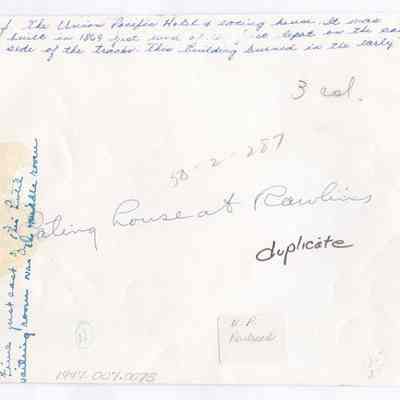 of the Union Pacific Hotel & eating house. It was
built in 1869 just west of depot on the
side of the tracks. This building burned in the early
3 col.
58-2-287
Eating house at Rawlins
duplicate
just east of this build
waiting room was the middle room
U.P.
Railroad